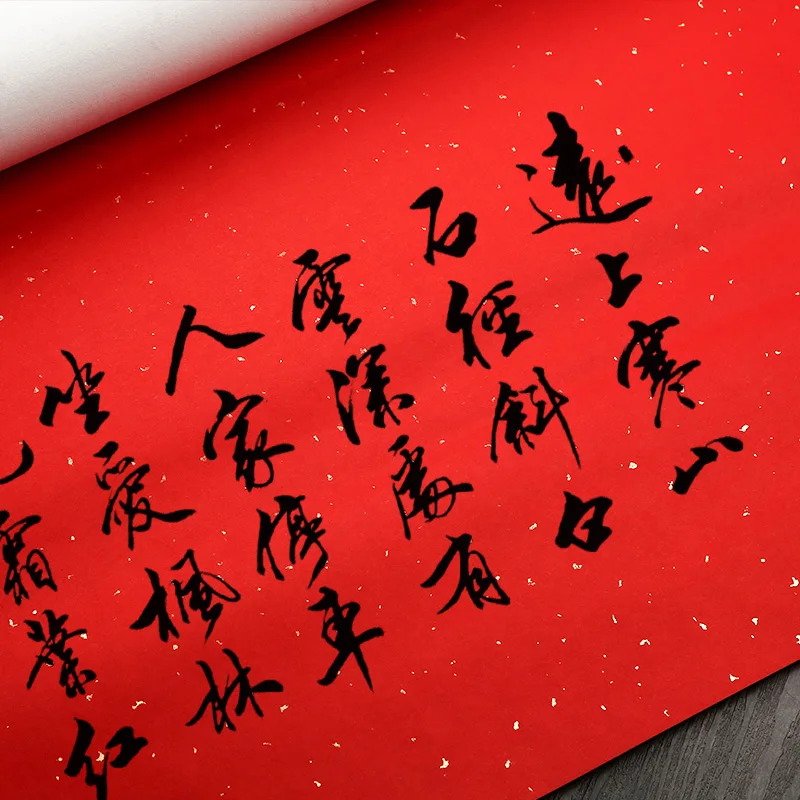 遠上寒山
石徑斜白
雲深處有
人家停車
坐愛楓林
霜葉紅